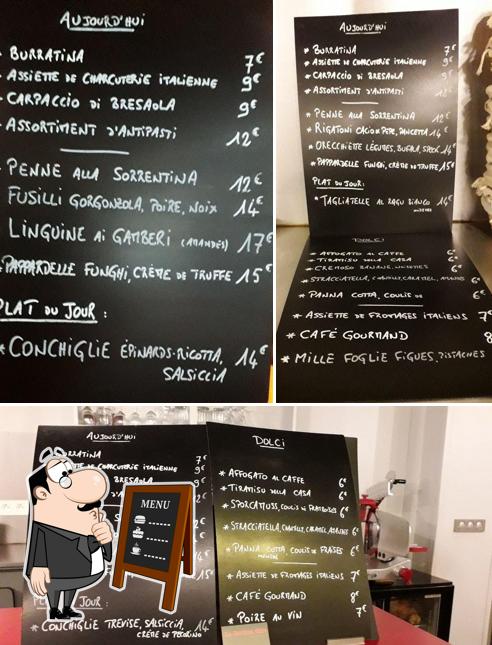 AUJOURD'HUI
BURRATINA 7€
ASSIETTE DE CHARCUTERIE ITALIENNE 9€
CARPACCIO DI BRESAOLA 9€
ASSORTIMENT D'ANTIPASTI 12€
PENNE ALLA SORRENTINA 12€
FUSILLI GORGONZOLA, POIRE, NOIX 14€
LINGUINE AI GAMBERI (AMANDES) 17€
PAPPARDELLE FUNGHI, CRÈME DE TRUFFE 15€
PLAT DU JOUR :
* CONCHIGLIE ÉPINARDS-RICOTTA, 14€
SALSICCIA
AUJOURD'HUI
* BURRATINA 7€
* ASSIETTE DE CHARCUTERIE ITALIENNE 9€
* CARPACCIO DI BRESAOLA 9€
* ASSORTIMENT D'ANTIPASTI 12€
* PENNE ALLA SORRENTINA 12€
* RIGATONI CACIO E PEPE, PANCETTA 14€
* ORECCHIETTE LÉGUMES, BUFALA, SPECK 14€
* PAPPARDELLE FUNGHI, CRÈME DE TRUFFE 15€
PLAT DU JOUR :
* TAGLIATELLE AL RAGU BIANCO 14€
DOLCI
* AFFOGATO AL CAFFE 6€
* TIRAMISU DELLA CASA 6€
* CREMOSO BANANE, 6€
* STRACCIATELLA, CARAMEL, 6€
* PANNA COTTA, COULIS DE 6€
* ASSIETTE DE FROMAGES ITALIENS 7€
* CAFÉ GOURMAND 8
* MILLE FOGLIE FIGUES, PISTACHES
AUJOURD'HUI
BURRATINA 7€
DE CHARCUTERIE ITALIENNE 9€
BRESAOLA 9€
15€
JOUR :
* CONCHIGLIE TREVISE, SALSICCIA, 14€
CRÈME DE PECORINO
DOLCI
* AFFOGATO AL CAFFE 6€
* TIRAMISU DELLA CASA 6€
* COULIS DE 6€
* STRACCIATELLA, CARAMEL, 6€
* PANNA COTTA, COULIS DE FRAISES 6€
* ASSIETTE DE FROMAGES ITALIENS 7€
* CAFÉ GOURMAND 8€
* POIRE AU VIN 7€
MENU